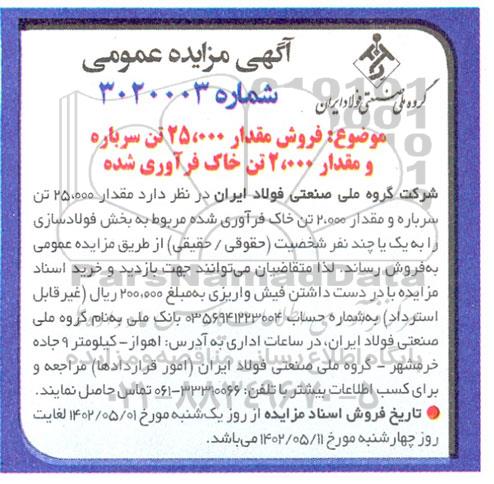 آگهی مزایده عمومی
شماره ۳۰۲۰۰۰۳
گروه ملی صنعتی فولاد ایران
موضوع: فروش مقدار ۲۵،۰۰۰ تن سرباره
و مقدار ۲،۰۰۰ تن خاک فرآوری شده
شرکت گروه ملی صنعتی فولاد ایران در نظر دارد مقدار ۲۵،۰۰۰ تن
سرباره و مقدار ۲،۰۰۰ تن خاک فرآوری شده مربوط به بخش فولادسازی
را به یک یا چند نفر شخصیت (حقوقی / حقیقی) از طریق مزایده عمومی
به‌فروش رساند. لذا متقاضیان می‌توانند جهت بازدید و خرید اسناد
مزایده با در دست داشتن فیش واریزی به‌مبلغ ۲۰۰،۰۰۰ ریال (غیرقابل
استرداد) به‌شماره حساب ۰۳۵۶۹۴۱۲۲۳۰۰۴ بانک ملی به‌نام گروه ملی
صنعتی فولاد ایران، در ساعات اداری به آدرس: اهواز- کیلومتر ۹ جاده
خرمشهر - گروه ملی صنعتی فولاد ایران (امور قراردادها) مراجعه و
برای کسب اطلاعات بیشتر با تلفن: ۳۳۳۱۰۰۶۶-۰۶۱ تماس حاصل نمایند.
● تاریخ فروش اسناد مزایده از روز یک‌شنبه مورخ ۱۴۰۲/۰۵/۰۱ لغایت
روز چهارشنبه مورخ ۱۴۰۲/۰۵/۱۱ می‌باشد.
ParsNamadData
پایگاه اطلاع رسانی مناقصه و مزایده
۰۲۱-۸۸۳۴۹۶۷۰-۵